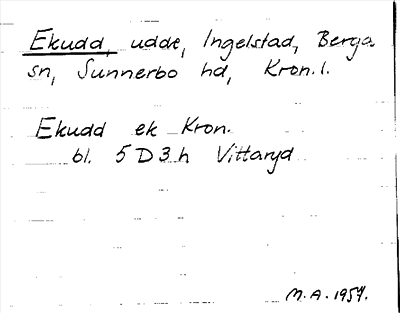 Ekudd, udde, Ingelstad, Berga
sn, Sunnerbo hd, Kron. l.
Ekudd ek Kron.
bl. 5 D 3 h Vittaryd
M.A. 1957.